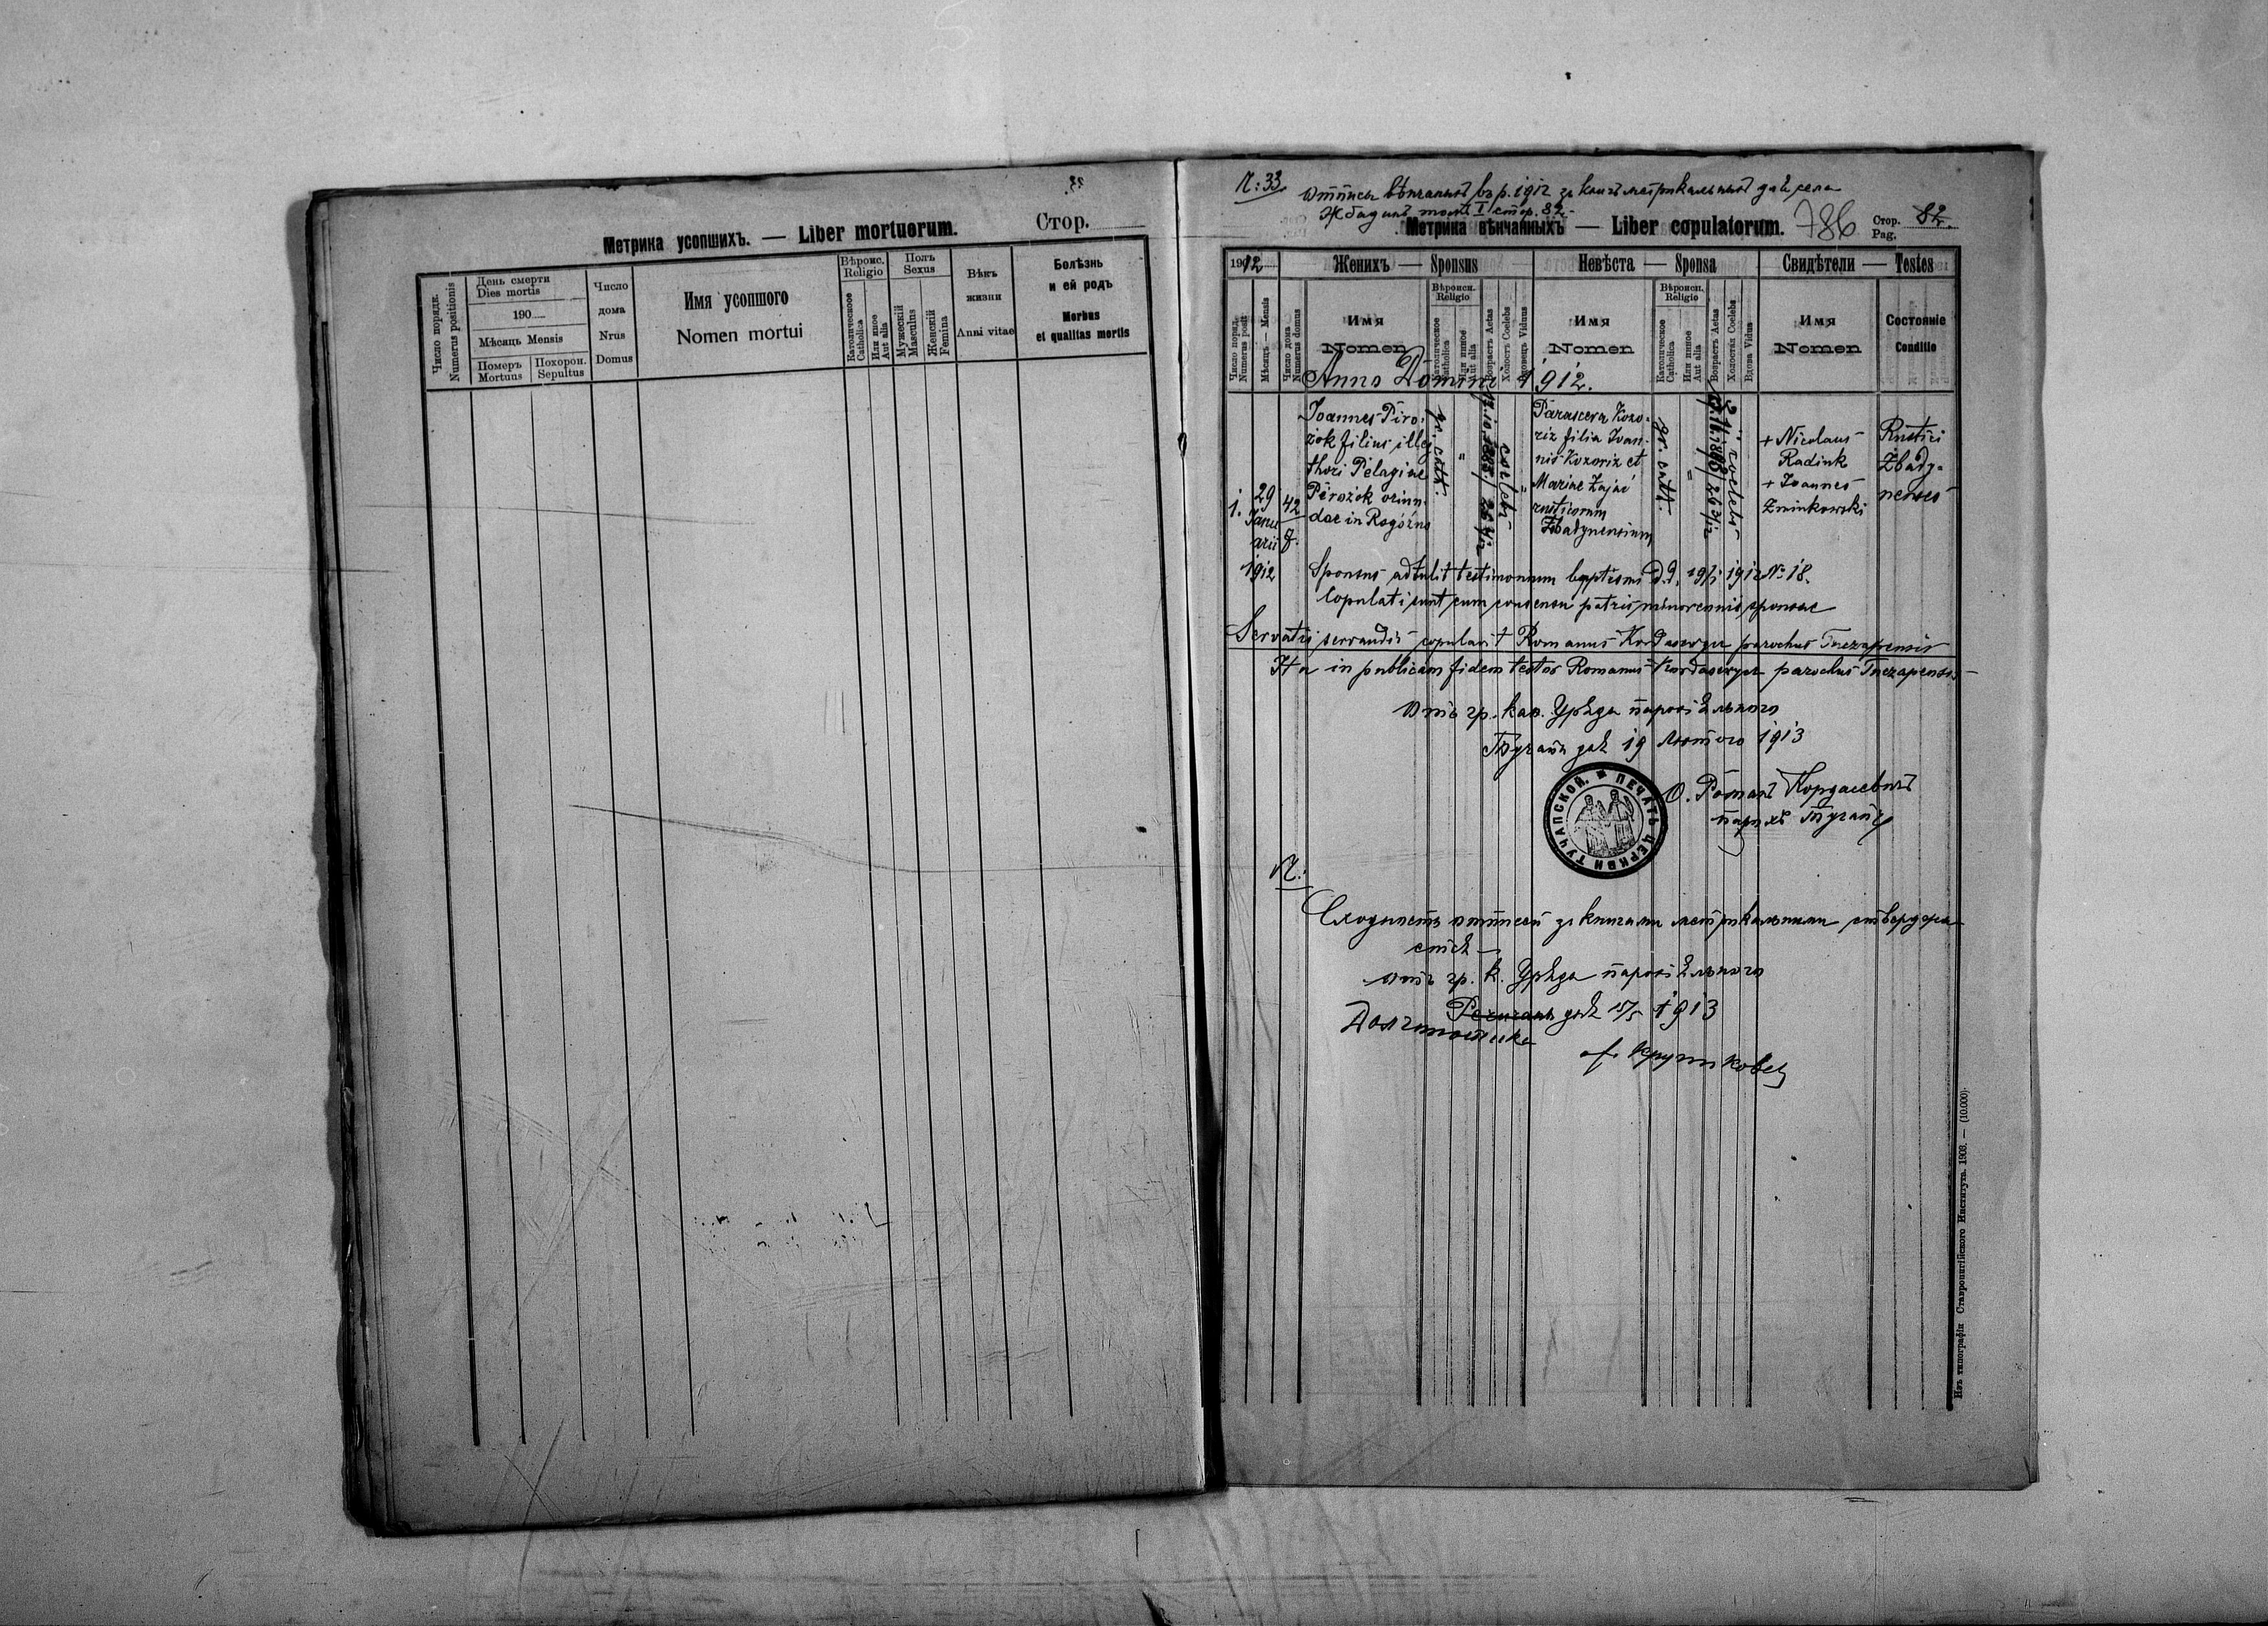 Метрика усопшихъ. — Liber mortuorum.
Стор.
Число порядк.
Numerus positionis
День смерти
Dies mortis
190
Мѣсяць Mensis
Померъ
Mortuus
Похорон.
Sepultus
Число
дома
Nrus
Domus
Имя усопшого
Nomen mortui
Вѣроис.
Religio
Католическоое
Catholica
Или иное
Aut alia
Полъ
Sexus
Мужескій
Masculus
Женскій
Femina
Вѣкъ
жизни
Anni vitae
Болѣзнь
и ей родъ
Morbus
et qualitas mortis
Ч: 33
вѣнчаныхъ въ р. 1912 зъ книгъ метрикальныхъ для села
томъ I стор. 82.
Метрика вѣнчанныхъ — Liber copulatorum.
786
Стор.
Pag.
82.
1912
Женихъ — Sponsus
Невѣста — Sponsa
Свидѣтели — Testes
Число поряд.
Numerus posit
Мѣсяць — Mensis
Число дома
Numerus domus
Имя
Nomen
Вѣроисп.
Religio
Католическое
Catholica
Или иное
Aut alia
Возрастъ Aetas
Холостъ Coelebs
Вдовець Viduus
Имя
Nomen
Вѣроисп.
Religio
Католическое
Catholica
Или иное
Aut alia
Возрастъ Aetas
Холостая Coelebs
Вдова Vidua
Имя
Nomen
Состояніе
Conditio
Anno Domini 1912.
1.
29
Janu
arii
1912
42
Joannes Piro-
żok filius illeg.
thori Pelagiae
Pirożok oriun-
dae in Rogóżno
gr. cath.
coelebs
Parasceva Kozo-
riz filia Ioan-
nis Kozoriz et
Mariae Zając
rusticorum
Żbadynensium
gr. cath.
coelebs
+ Nicolaus
Radiuk
+ Joannes
Żminkowski
Rustici
Żbady-
nenses
Sponsus adtulit testimonium baptismi d.d. 1912 № 18.
Copulati sunt cum consensu patris minorennis sponsae
Servatis servandis copulavit Romanus Kordasevycz parochus Tuczapensis
Ita in publicam fidem testor Romanus Kordasevycz parochus Tuczapensis
Отъ гр. кат. Уряда парохіяльного
дня 19 Лютого 1913
ПЕЧАТЬ ЦЕРКВИ ТУЧАПСКОЙ.
О. Романъ Кордасевичъ
парохъ
Ч:
Сходность зъ книгами метрикальными стверджа
еся
отъ гр. к. Уряда парохіяльного
дня 1913
Изъ типографіи Ставропигійского Института. 1909. — (10.000)